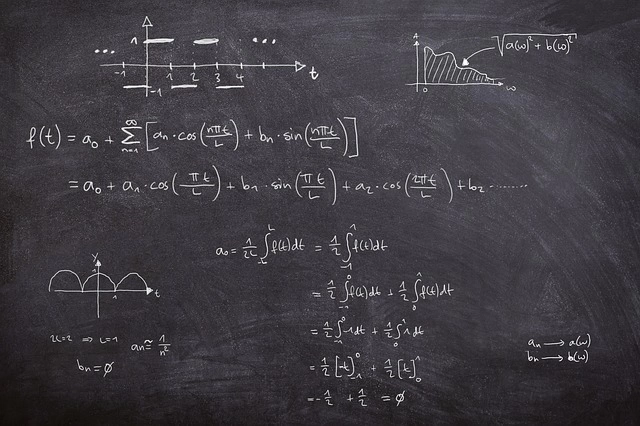 1
... ...
-1 1 2 3 4 t
-1
A √(a(ω)² + b(ω)²)
0 ω
f(t) = a₀ + ∞∑n=1 [aₙ·cos(nπt/L) + bₙ·sin(nπt/L)]
= a₀ + a₁·cos(πt/L) + b₁·sin(πt/L) + a₂·cos(2πt/L) + b₂........
a₀ = 1/2L ∫-L^L f(t)dt = 1/2 ∫-1^1 f(t)dt
= 1/2 ∫-1^0 f(t)dt + 1/2 ∫0^1 f(t)dt
= 1/2 ∫-1^0 -1dt + 1/2 ∫0^1 1dt
= 1/2 [-t]-1^0 + 1/2 [t]0^1
= -1/2 + 1/2 = ∅
y
1 t
2L=2 ⇒ L=1 aₙ ≅ 1/n²
bₙ = ∅
aₙ → a(ω)
bₙ → b(ω)